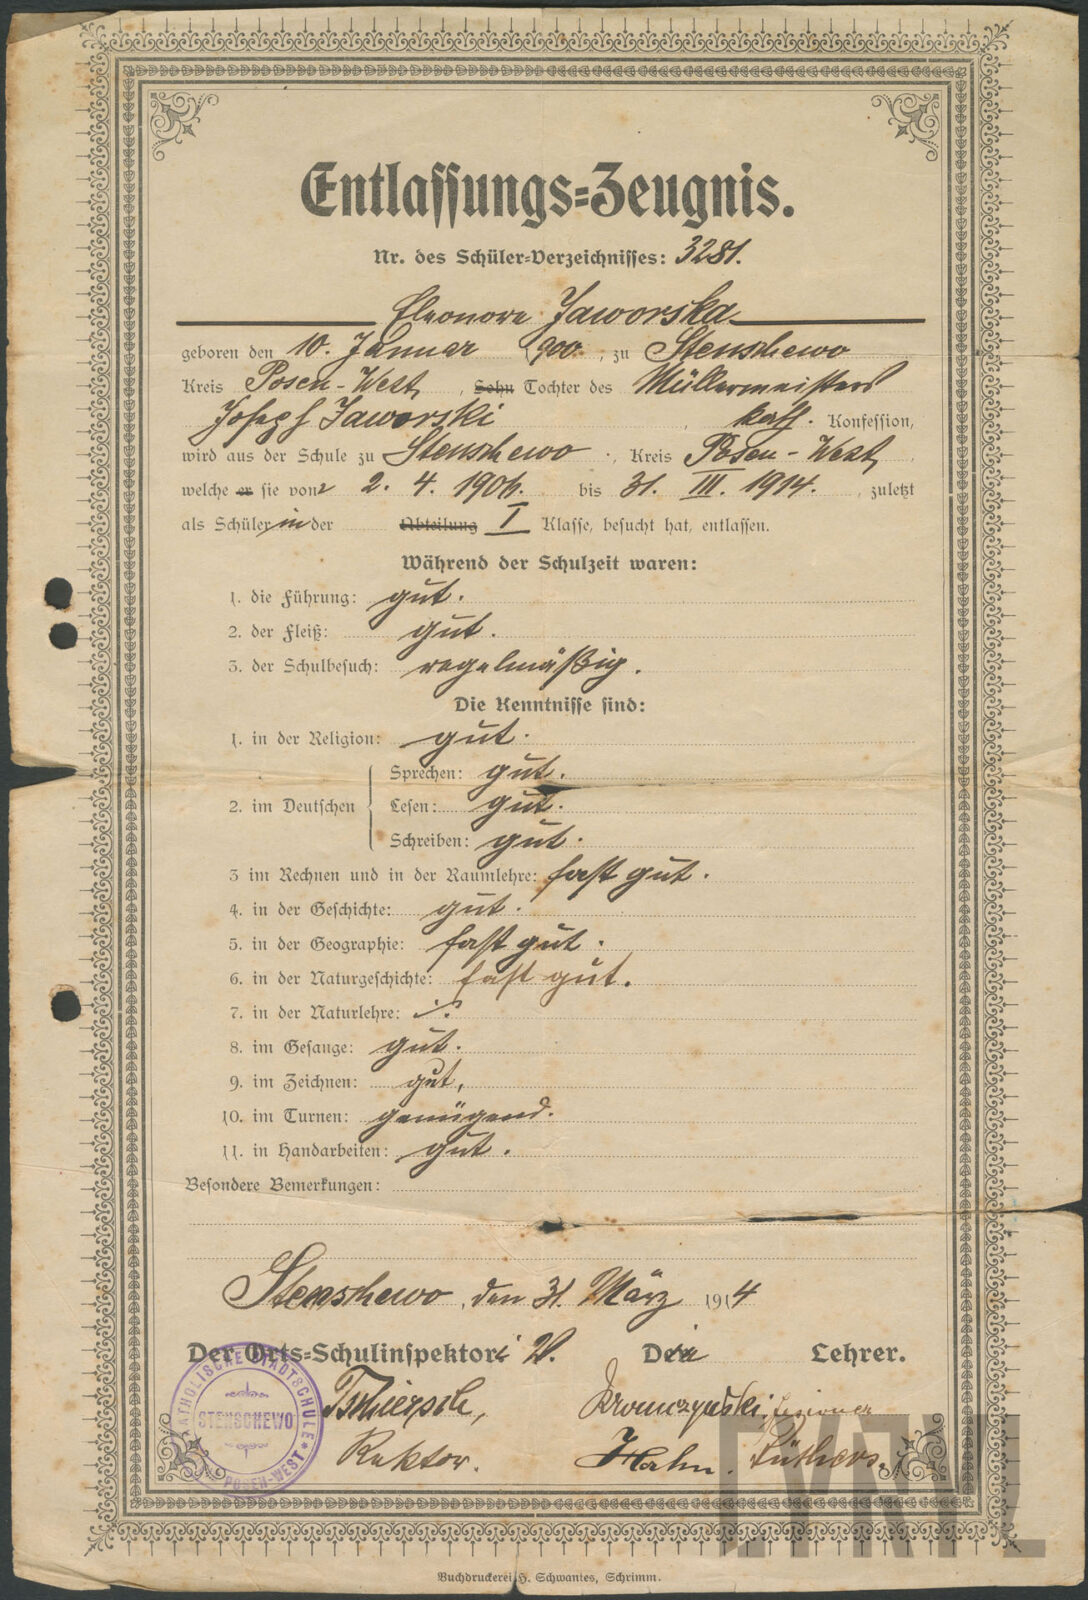 Entlassungs-Zeugnis.
Nr. des Schüler-Verzeichnisses: 3281.
Eleonore Jaworska
geboren den 10. Januar 1900., zu Stenschewo
Kreis Posen-West, Sohn Tochter des Müllermeisters
Joseph Jaworski, kath. Konfession,
wird aus der Schule zu Stenschewo, Kreis Posen-West,
welche er sie von 2. 4. 1906. bis 31. III. 1914., zuletzt
als Schülerin der Abteilung I Klasse, besucht hat, entlassen.
Während der Schulzeit waren:
1. die Führung: gut.
2. der Fleiß: gut.
3. der Schulbesuch: regelmäßig.
Die Kenntnisse sind:
1. in der Religion: gut.
Sprechen: gut.
2. im Deutschen Lesen: gut.
Schreiben: gut.
3 im Rechnen und in der Raumlehre: fast gut.
4. in der Geschichte: gut.
5. in der Geographie: fast gut.
6. in der Naturgeschichte: fast gut.
7. in der Naturlehre:
8. im Gesange: gut.
9. im Zeichnen: gut,
10. im Turnen: genügend.
11. in Handarbeiten: gut.
Besondere Bemerkungen:
Stenschewo, den 31. März 1914
Der Orts-Schulinspektor i. V. Die Lehrer.
Tschiersch,
Rektor. Hahn.
KATHOLISCHE STADTSCHULE
STENSCHEWO
POSEN-WEST
CYRYL
Buchdruckerei H. Schwantes, Schrimm.